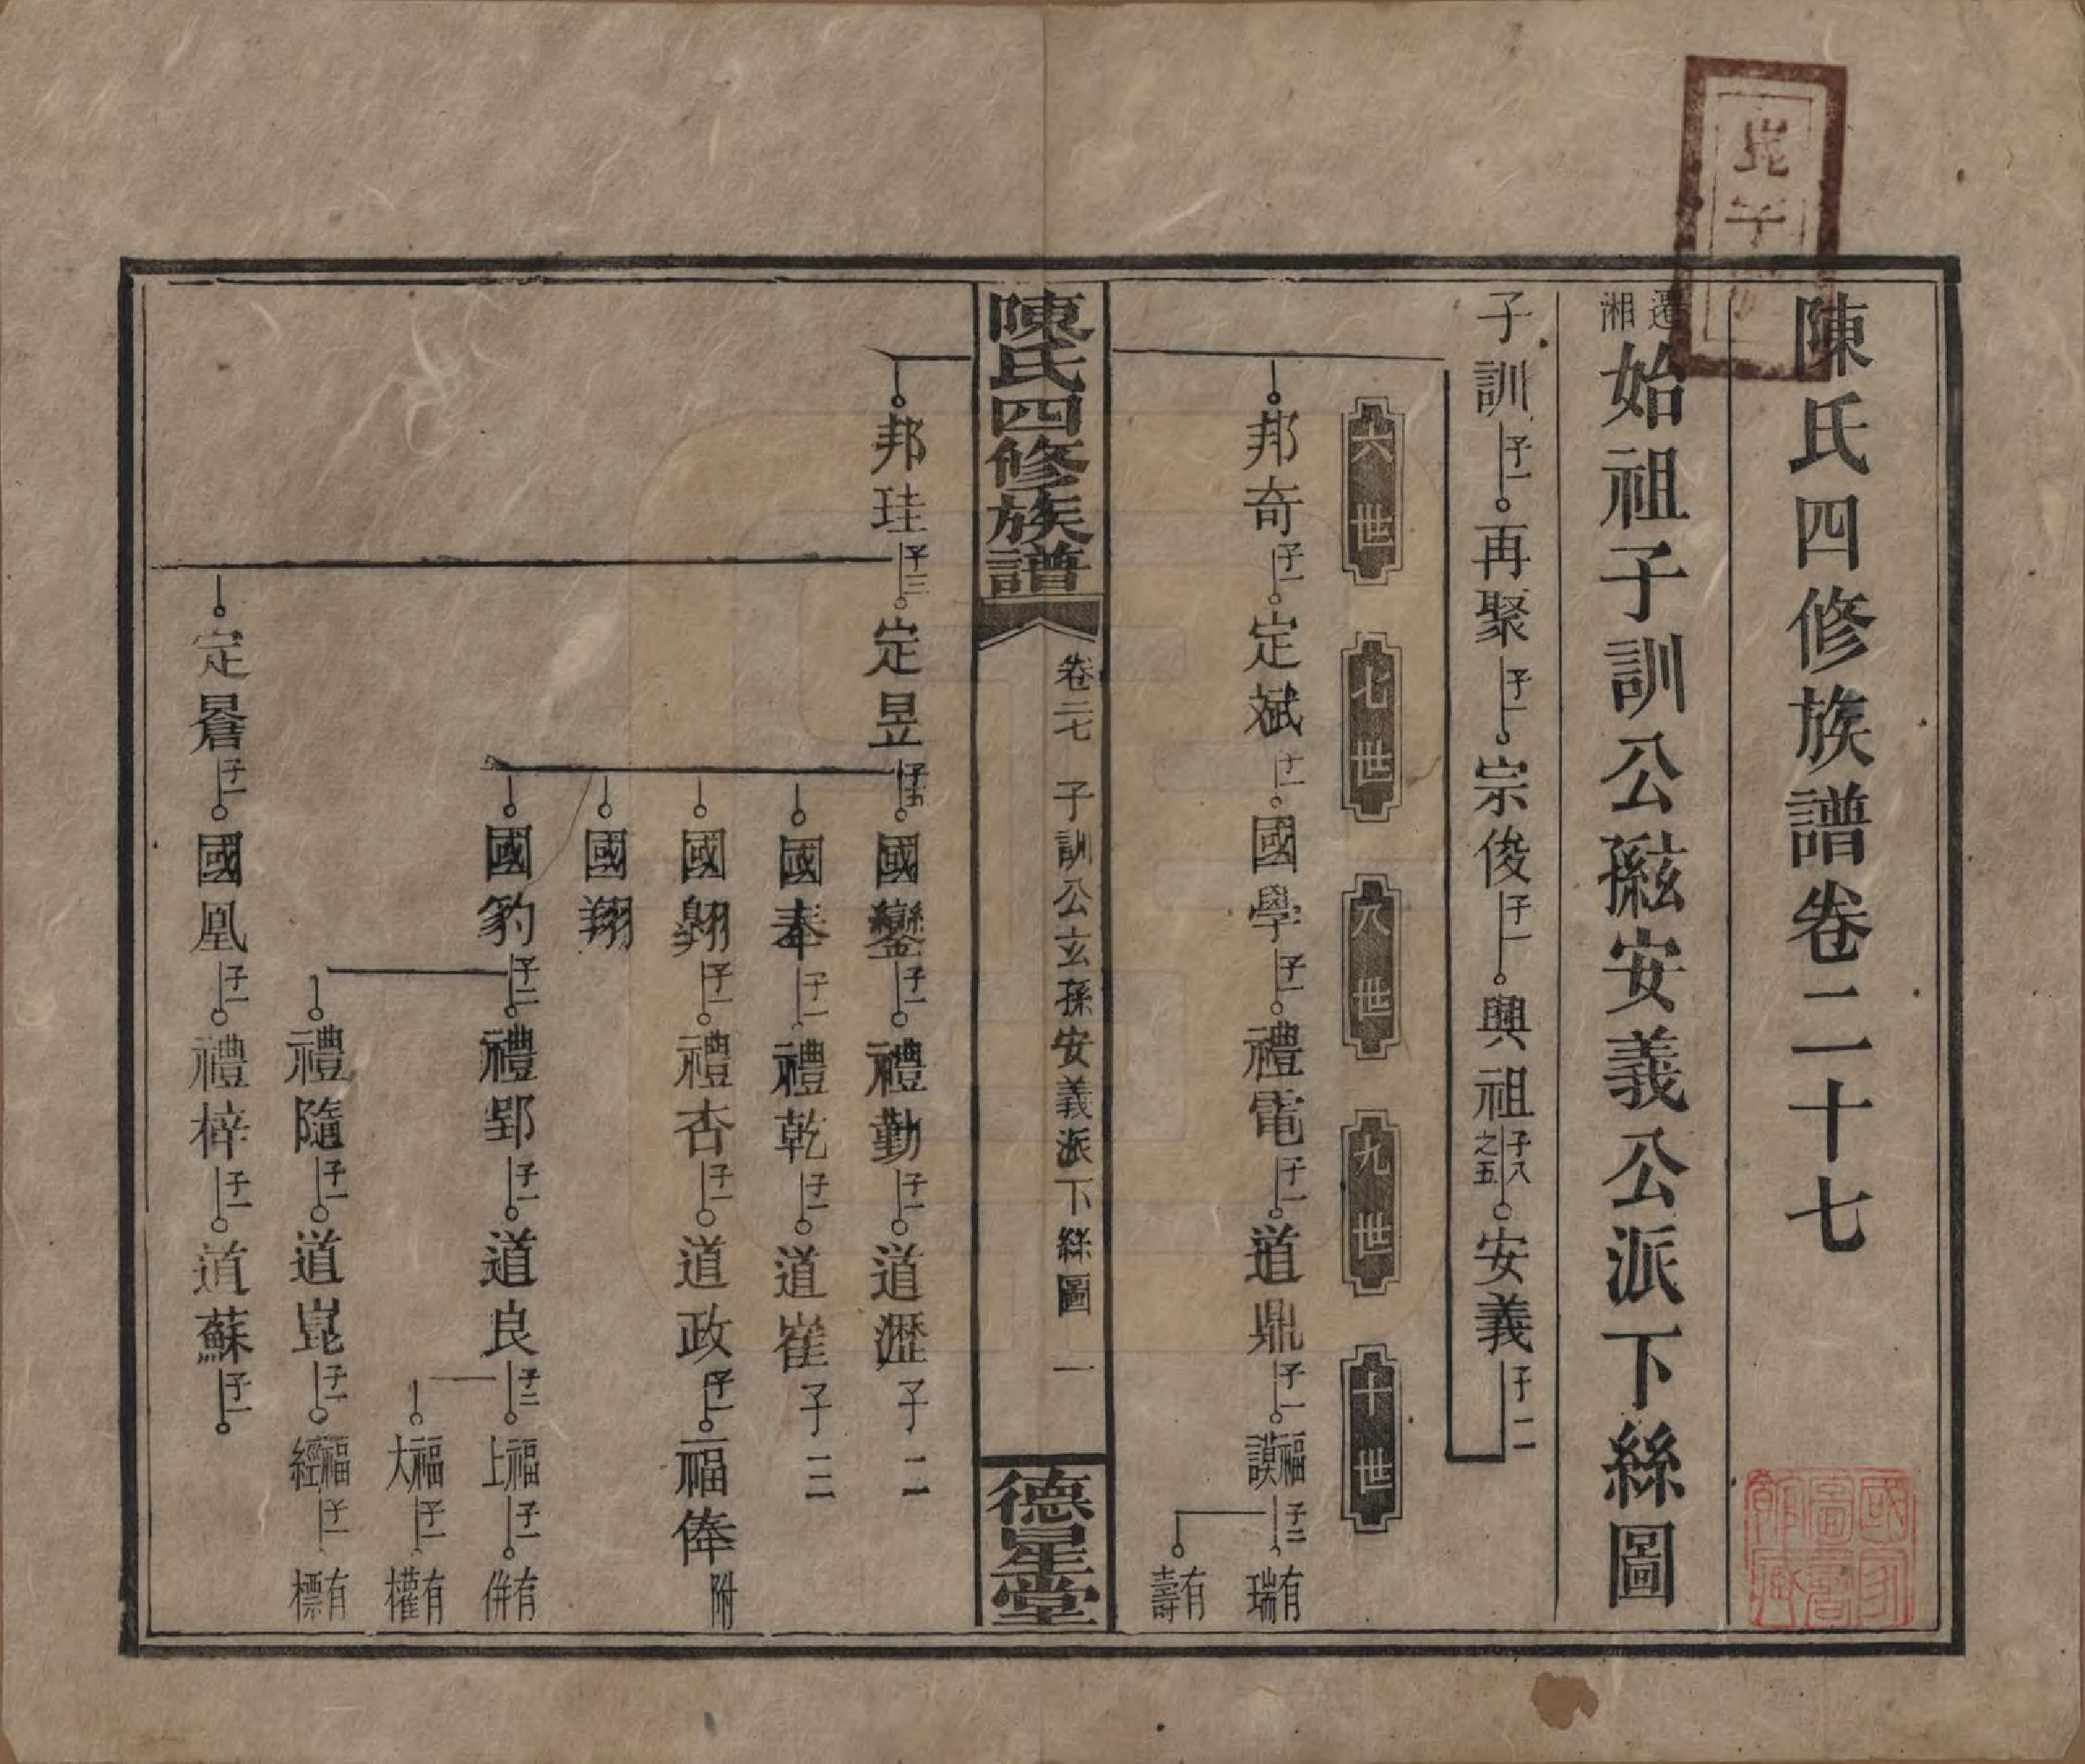 陳氏四修族譜卷二十七
遷湘始祖子訓公孫玆安義公派下絲圖
子訓 子一 再聚 子一 宗俊 子一 興祖 子八之五 安義 子二
六世 七世 八世 九世 十世
邦奇 子一 定斌 子一 國學 子一 禮電 子一 道鼎 子一 福謨 子二 有瑞
有壽
陳氏四修族譜 卷二七 子訓公玄孫安義派下絲圖 一 德星堂
邦珪 子三 定昱 子五 國鑾 子一 禮勤 子一 道瀝 子二
國奉 子一 禮乾 子一 道崔 子二
國翱 子一 禮杏 子一 道政 子一 福俸 附
國翔
國豹 子二 禮郢 子一 道良 子二 福上 子一 有併
福大 子一 有權
禮隨 子一 道崑 子一 福經 子一 有標
定晷 子一 國凰 子一 禮梓 子一 道蘇 子一
國家圖書館藏